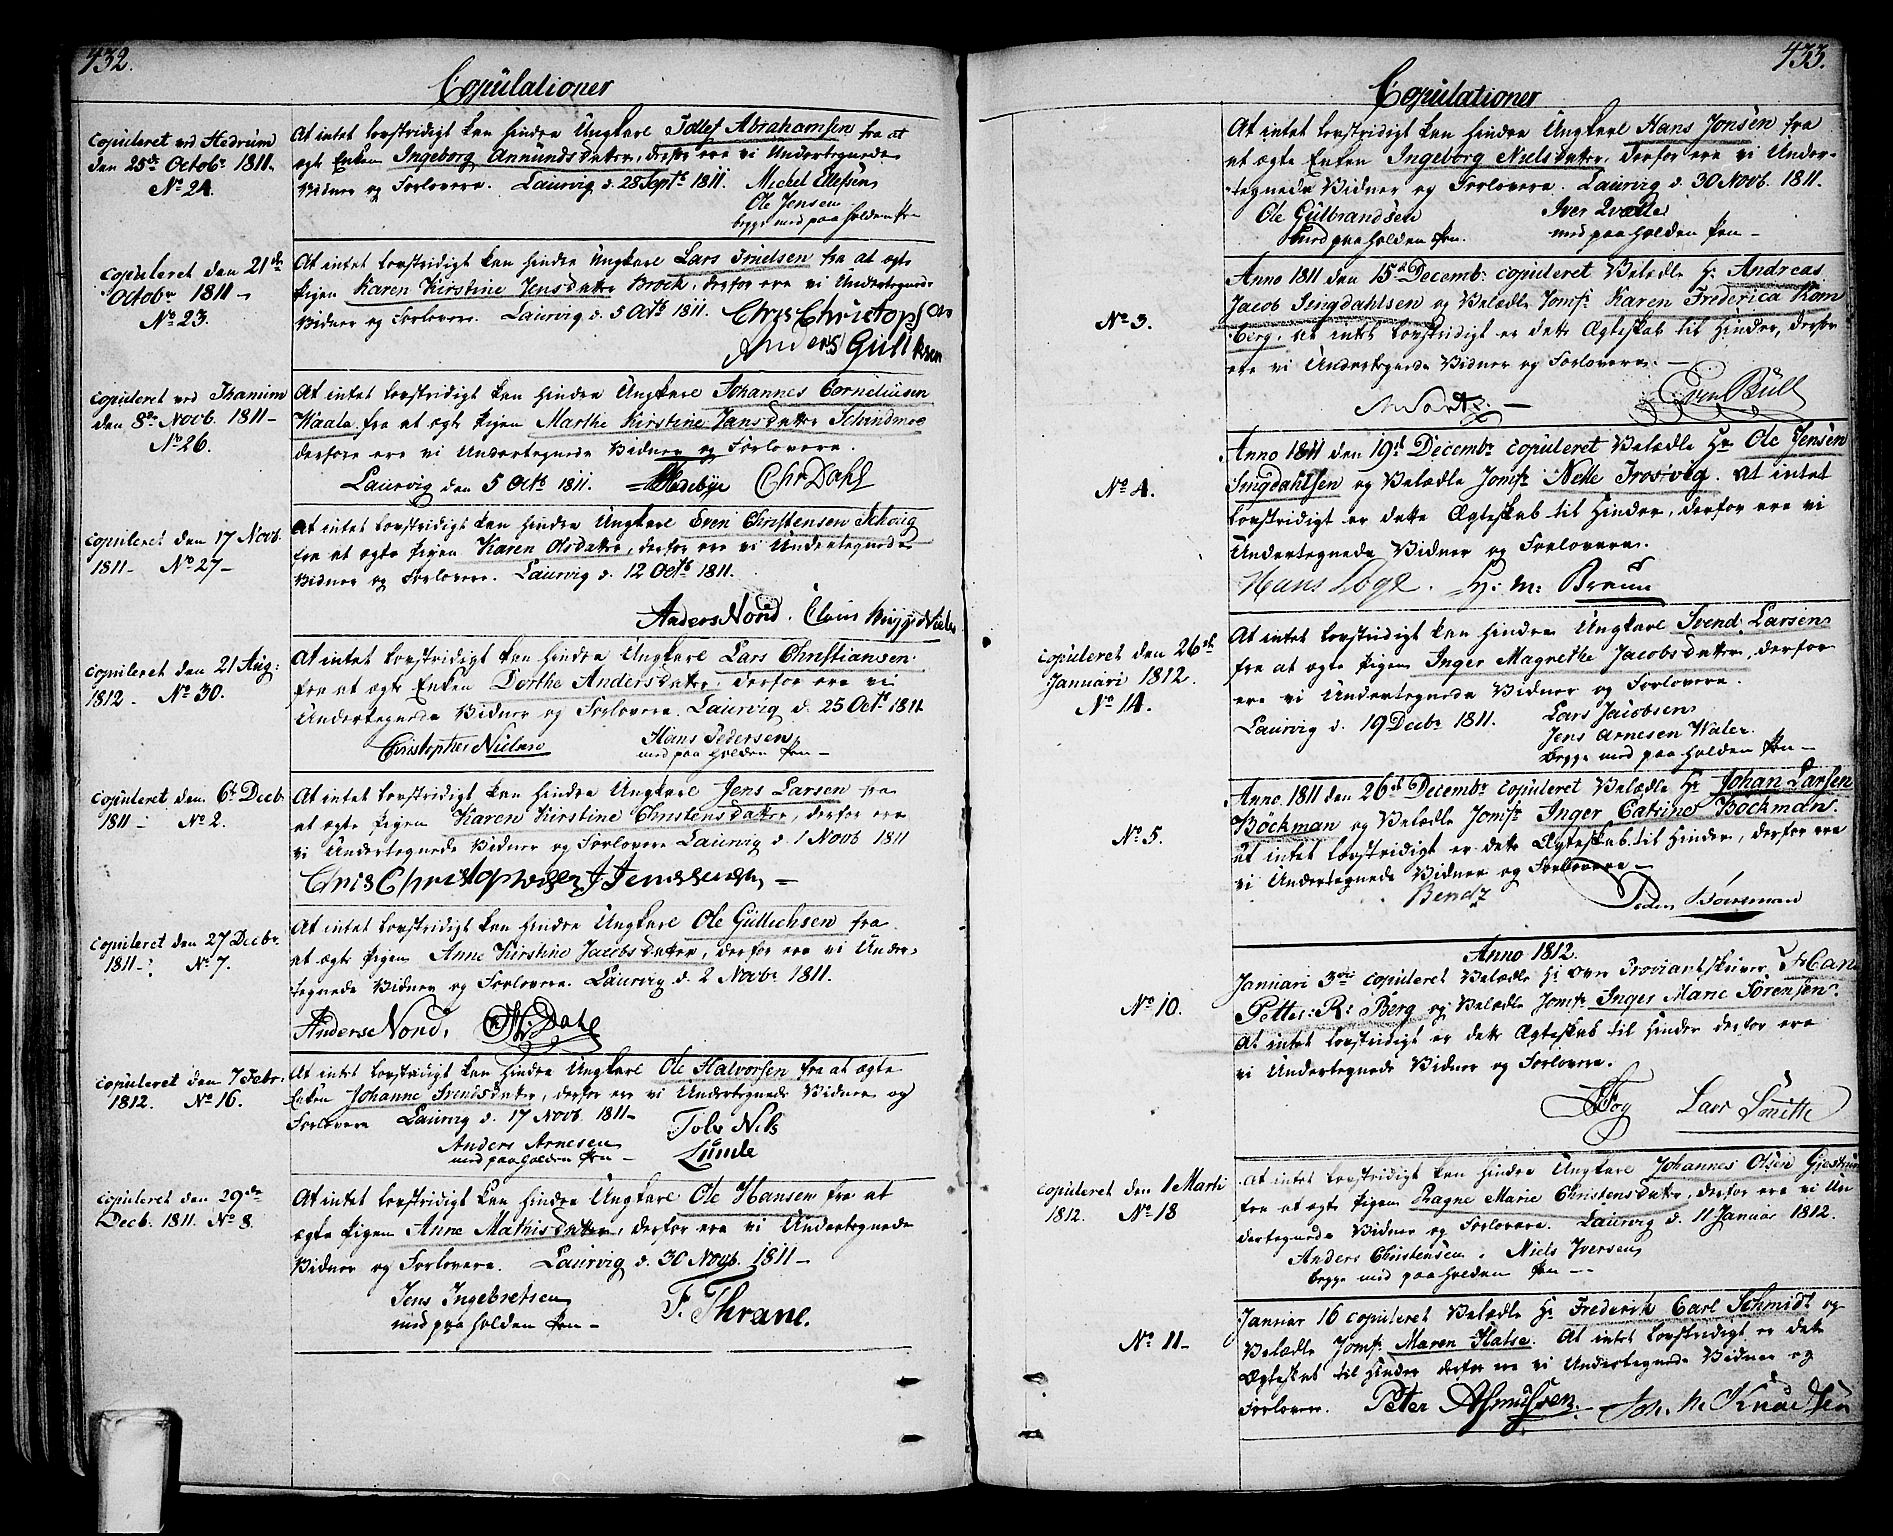 432.
Copulationer
copuleret ved Hedrum
den 25de Octobr 1811.
No 24.
At intet lovstridigt kan hindre Ungkarl Tollef Abrahamsen fra at
ægte Enken Ingeborg Anmunds datter, derfor ere vi Undertegnede
Vidner og Forlovere. Laurvig d. 28 Septbr 1811. Michel Ellefsen
Ole Jensen
begge med paaholden Pen
copuleret den 21de
Octobr 1811 –
No 23.
At intet lovstridigt kan hindre Ungkarl Lars Truelsen fra at ægte
Pigen Karen Kirstine Jensdatter Brock, derfor ere vi Undertegnede
Vidner og Forlovere. Laurvig d. 5 Octb 1811. Chris Christophsen
Anders Gulliksen
copuleret ved Thanum
den 8de Novb. 1811 –
No 26.
At intet lovstridigt kan hindre Ungkarl Johannes Corneliusen
Waala fra at ægte Pigen Marthe Kirstine Jansdatter
derfore ere vi Undertegnede Vidner og Forlovere.
Laurvig den 5 Octb 1811. Chr Dahl
copuleret den 17 Novb.
1811 – No 27 –
At intet lovstridigt kan hindre Ungkarl Sven Christensen
fra at ægte Pigen Karen Olsdatter, derfor ere vi Undertegnede
Vidner og Forlovere. Laurvig d. 12 Octb 1811.
Anders Nord.
copuleret den 21 Aug:
1812. No 30.
At intet lovstridigt kan hindre Ungkarl Lars Christiansen
fra at ægte Enken Dorthe Andersdatter, derfor ere vi
Undertegnede Vidner og Forlovere. Laurvig d. 25 Octb 1811
Christopher Nielsen Hans Pedersen
med paaholden Pen –
copuleret den 6t Decb
1811 – No 2.
At intet lovstridigt kan hindre Ungkarl Jens Larsen fra
at ægte Pigen Karen Kirstine Christensdatter, derfor ere
vi Undertegnede Vidner og Forlovere Laurvig d. 1 Novb 1811
Chris Christophersen J Jenssen –
copuleret den 27 Decbr
1811 – No 7.
At intet lovstridigt kan hindre Ungkarl Ole Gullichsen fra
at ægte Pigen Anne Kirstine Jacobsdatter, derfor ere vi Under-
tegnede Vidner og Forlovere. Laurvig d. 2 Novbr 1811.
Anders Nord. Dahl
copuleret den 7 Febr.
1812. No 16.
At intet lovstridigt kan hindre Ungkarl Ole Halvorsen fra at ægte
Enken Johanne Svendsdatter, derfor ere vi Undertegnede Vidner og
Forlovere Laurvig d. 17 Novb 1811 –
Anders Arnesen Tolv Nils
med paaholden Pen – Lunde
copuleret den 29de
Decb. 1811. No 8.
At intet lovstridigt kan hindre Ungkarl Ole Hansen fra at
ægte Pigen Anne Mathisdatter, derfor ere vi Undertegnede
Vidner og Forlovere. Laurvig d. 30 Novb. 1811 –
Jens Ingebretsen F. Thrane.
med paaholden Pen –
433.
Copulationer
At intet lovstridigt kan hindre Ungkarl Hans Jonsen fra
at ægte Enken Ingeborg Nielsdatter, derfor ere vi Under-
tegnede Vidner og Forlovere. Laurvig d. 30 Novb. 1811.
Ole Gulbrandsen Iver Qvælle
med paaholden Pen. med paaholden Pen –
No 3.
Anno 1811 den 15d Decembr copuleret Velædle Hr Andreas
Jacob Smgdahlsen og Velædle Jomfr Karen Frederica Rom
berg, at intet lovstridigt er dette Ægteskab til Hinder, derfor
ere vi Undertegnede Vidner og Forlovere. –
Even Bull
No 4.
Anno 1811 den 19d Decembr copuleret Velædle Hr Ole Jensen
Smgdahlsen og Velædle Jomfr Nelle Trosvig. At intet
lovstridigt er dette Ægteskab til Hinder, derfor ere vi
Undertegnede Vidner og Forlovere.
Hans Loge. H: M: Bruun
copuleret den 26de
Januari 1812.
No 14.
At intet lovstridigt kan hindre Ungkarl Svend Larsen
fra at ægte Pigen Inger Magrethe Jacobsdatter, derfor
ere vi Undertegnede Vidner og Forlovere.
Laurvig d. 19 Decbr 1811. Lars Jacobsen
Jens Arnesen Waler
begge med paaholden Pen –
No 5.
Anno 1811 den 26d Decembr copuleret Velædle Hr Johan Larsen
Böckman og Velædle Jomfr Inger Catrine Böckman
at intet lovstridigt er dette Ægteskab til Hinder, derfor ere
vi Undertegnede Vidner og Forlovere –
Bendz Peder
Anno 1812.
No 10.
Januari 3die copuleret Velædle Hr over Proviantskriver
Petter: R: Berg og Velædle Jomfr Inger Marie Sörensen
At intet lovstridigt er dette Ægteskab til Hinder derfor ere
vi Undertegnede Vidner og Forlovere.
Fog Lars Smitte
copuleret den 1 Marti
1812. No 18
At intet lovstridigt kan hindre Ungkarl Johannes Olsen Gjestrum
fra at ægte Pigen Ragne Marie Christensdatter, derfor ere vi Un
dertegnede Vidner og Forlovere. Laurvig d. 11 Januar 1812.
Anders Christensen. Niels Iversen
begge med paaholden Pen –
No 11 –
Januar 16 copuleret Velædle Hr Frederik Carl Schmidt og
Velædle Jomfr Maren Flatse. At intet lovstridigt er dette
Ægteskab til Hinder derfor ere vi Undertegnede Vidner og
Forlovere. Peter Asmussen. Joh. N. Knudsen